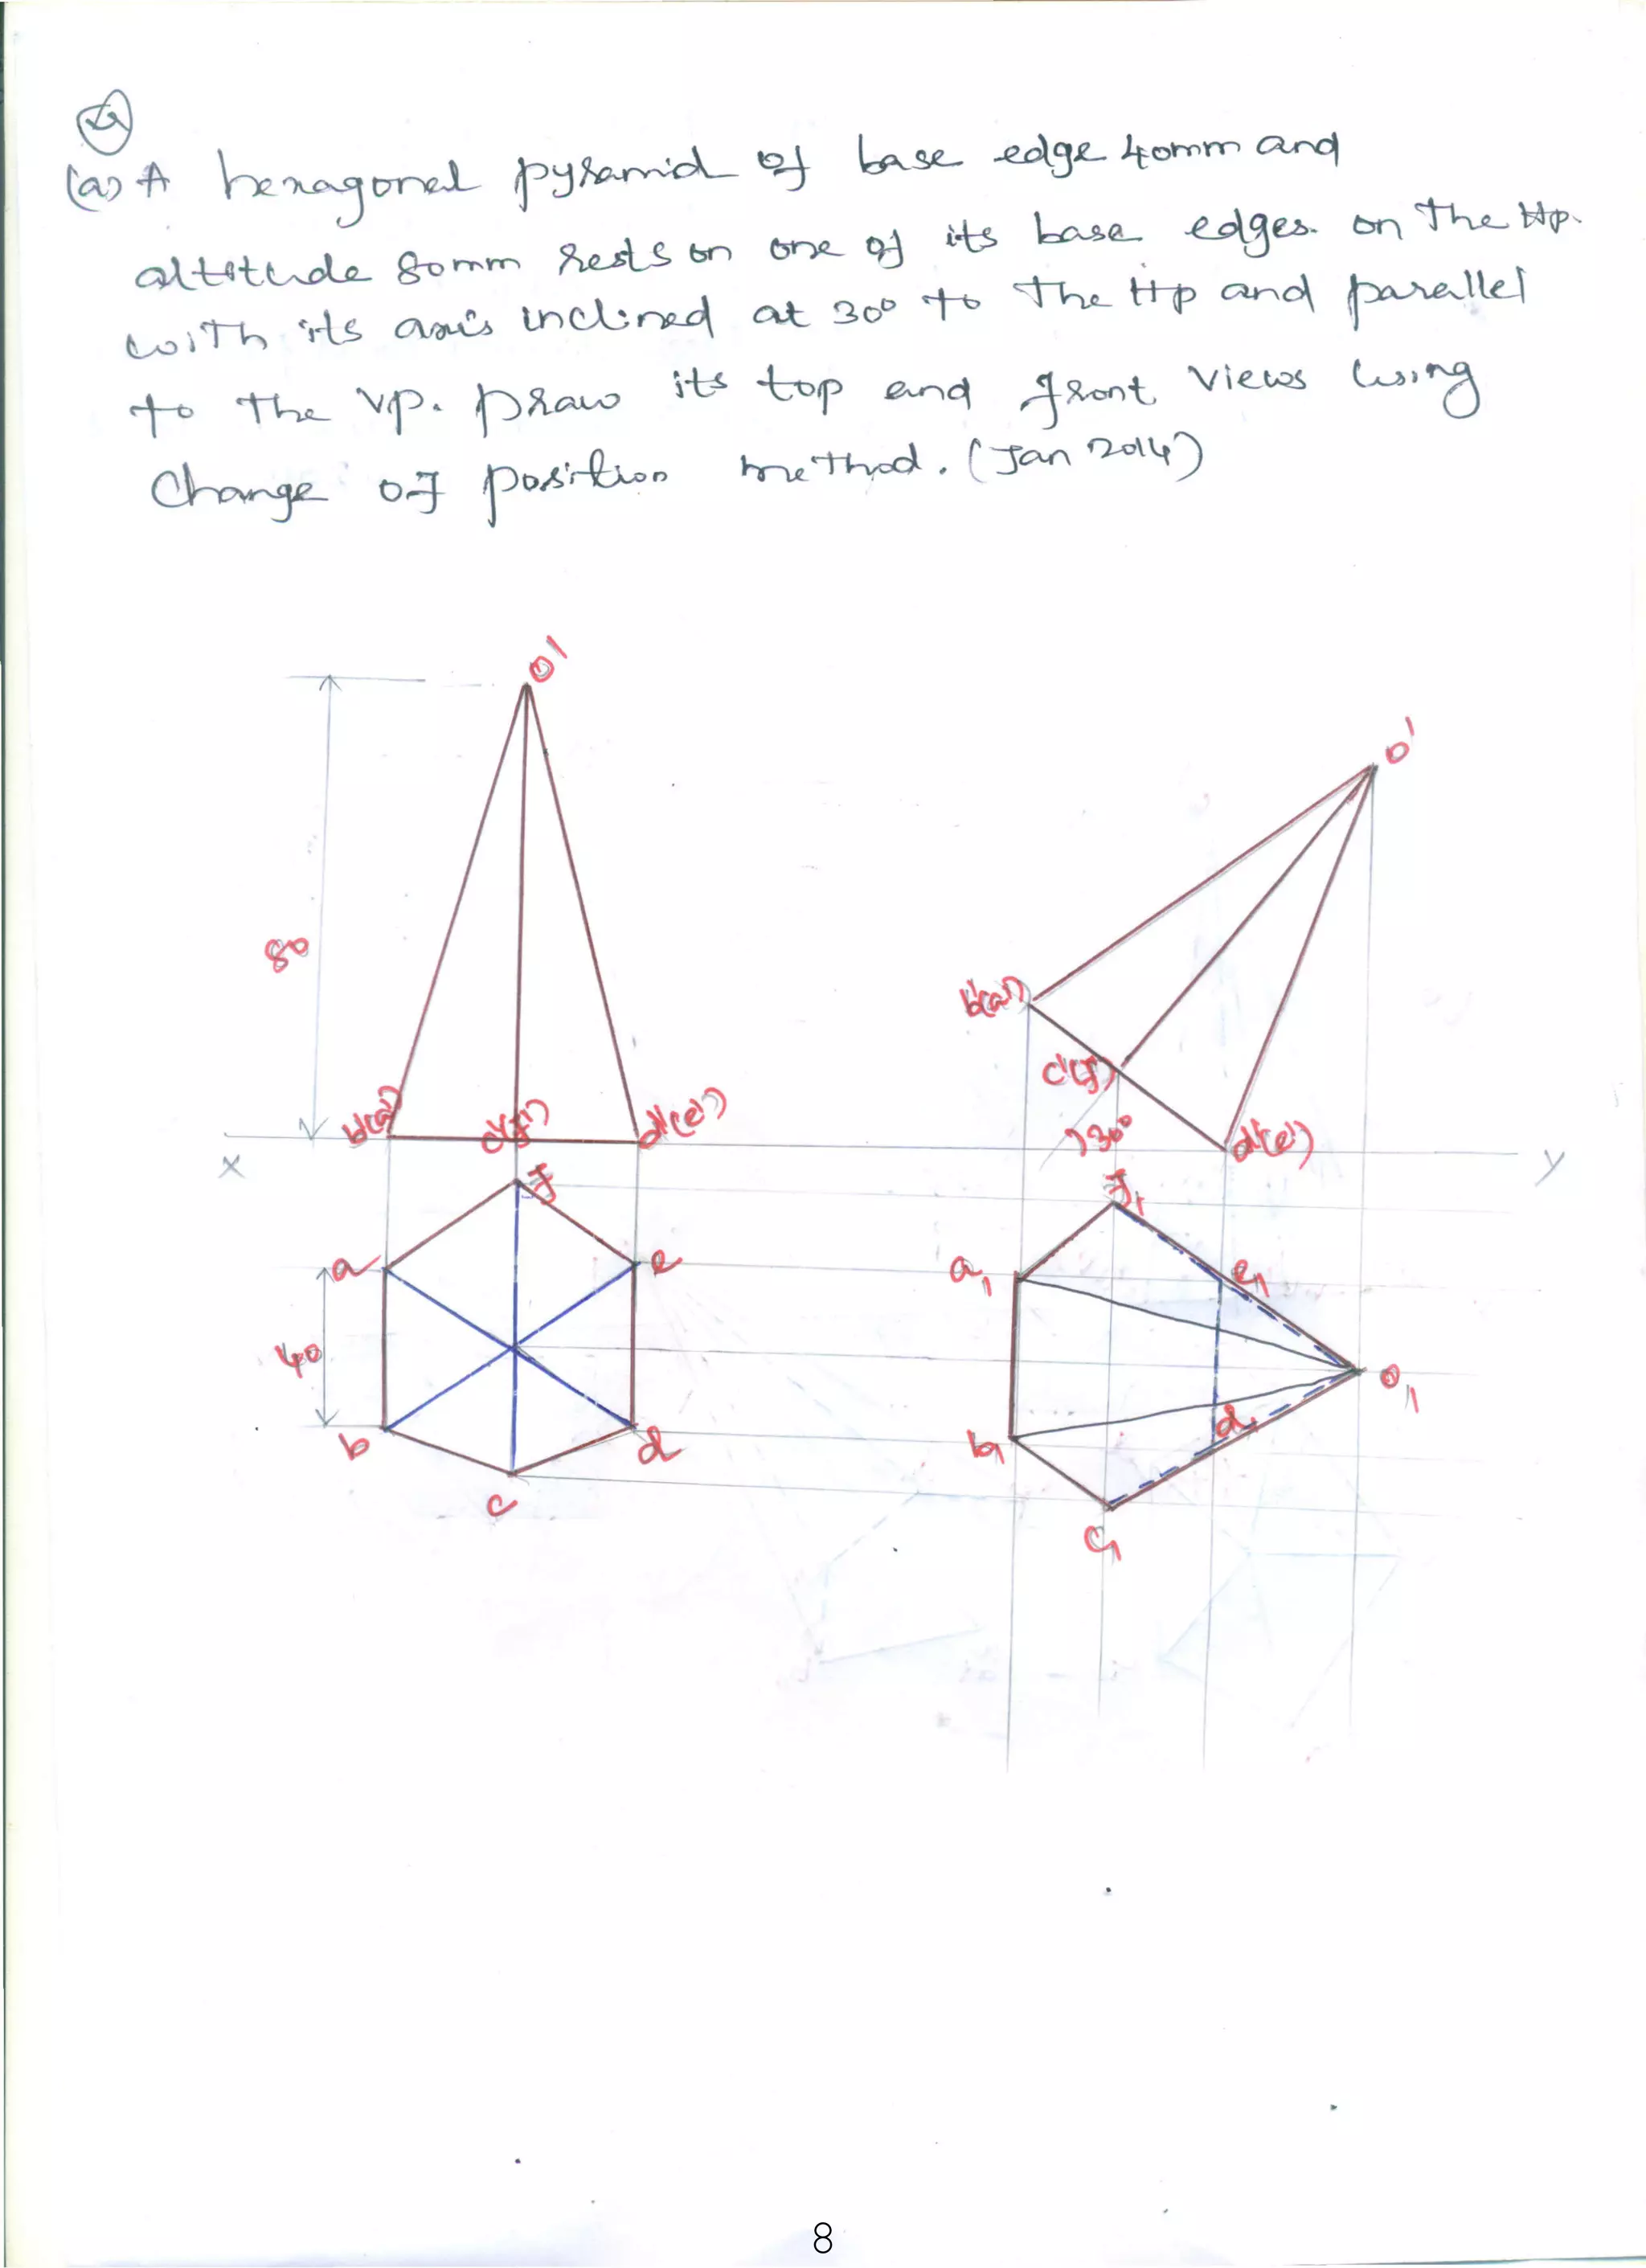 (a) A hexagonal pyramid of base edge 40mm and
altitude 80mm rests on one of its base edges. on the Hp.
with its axis inclined at 30° to the Hp and parallel
to the Vp. Draw its top and front views using
Change of position method. (Jan 2014)
O'
O'
80
b'(a')
c'(f')
b'(a')
c'(f')
d'(e')
30°
d'(e')
X
Y
f
f1
a
e
a1
e1
40
O1
b
d
b1
d1
c
c1
8